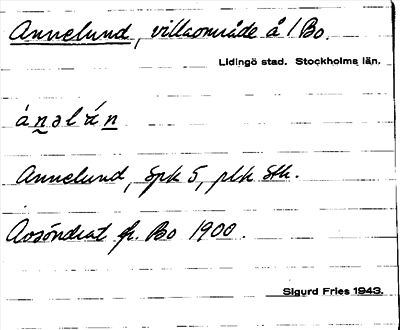 Annelund, villaområde å 1 Bo.
Lidingö stad. Stockholms län.
ánəlán
Annelund, öpk 5, plk Sth.
Avsöndrat fr. Bo 1900.
Sigurd Fries 1943.